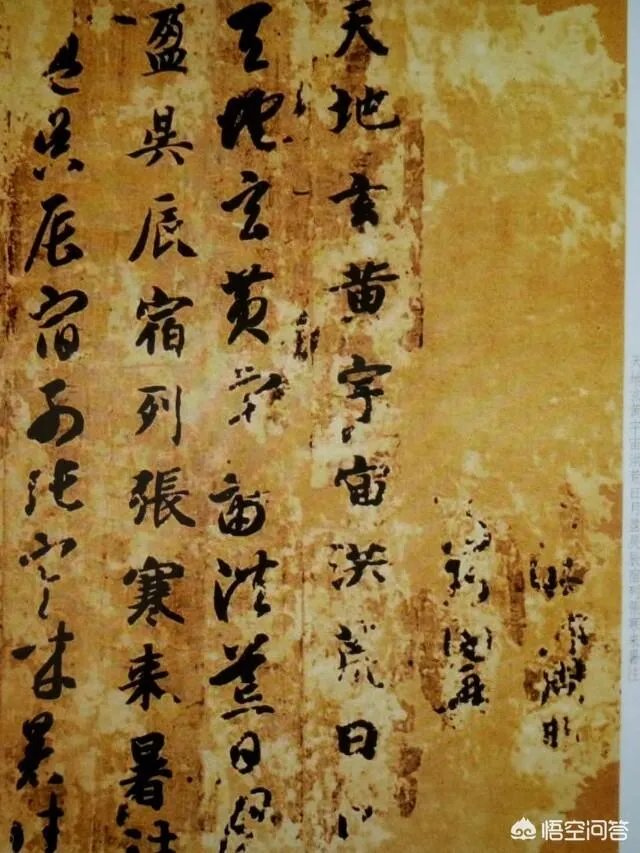 天地玄黄宇宙洪荒日月
天地玄黄宇宙洪荒日月
盈昃辰宿列張寒来暑往
盈昃辰宿列張寒来暑往
悟空问答